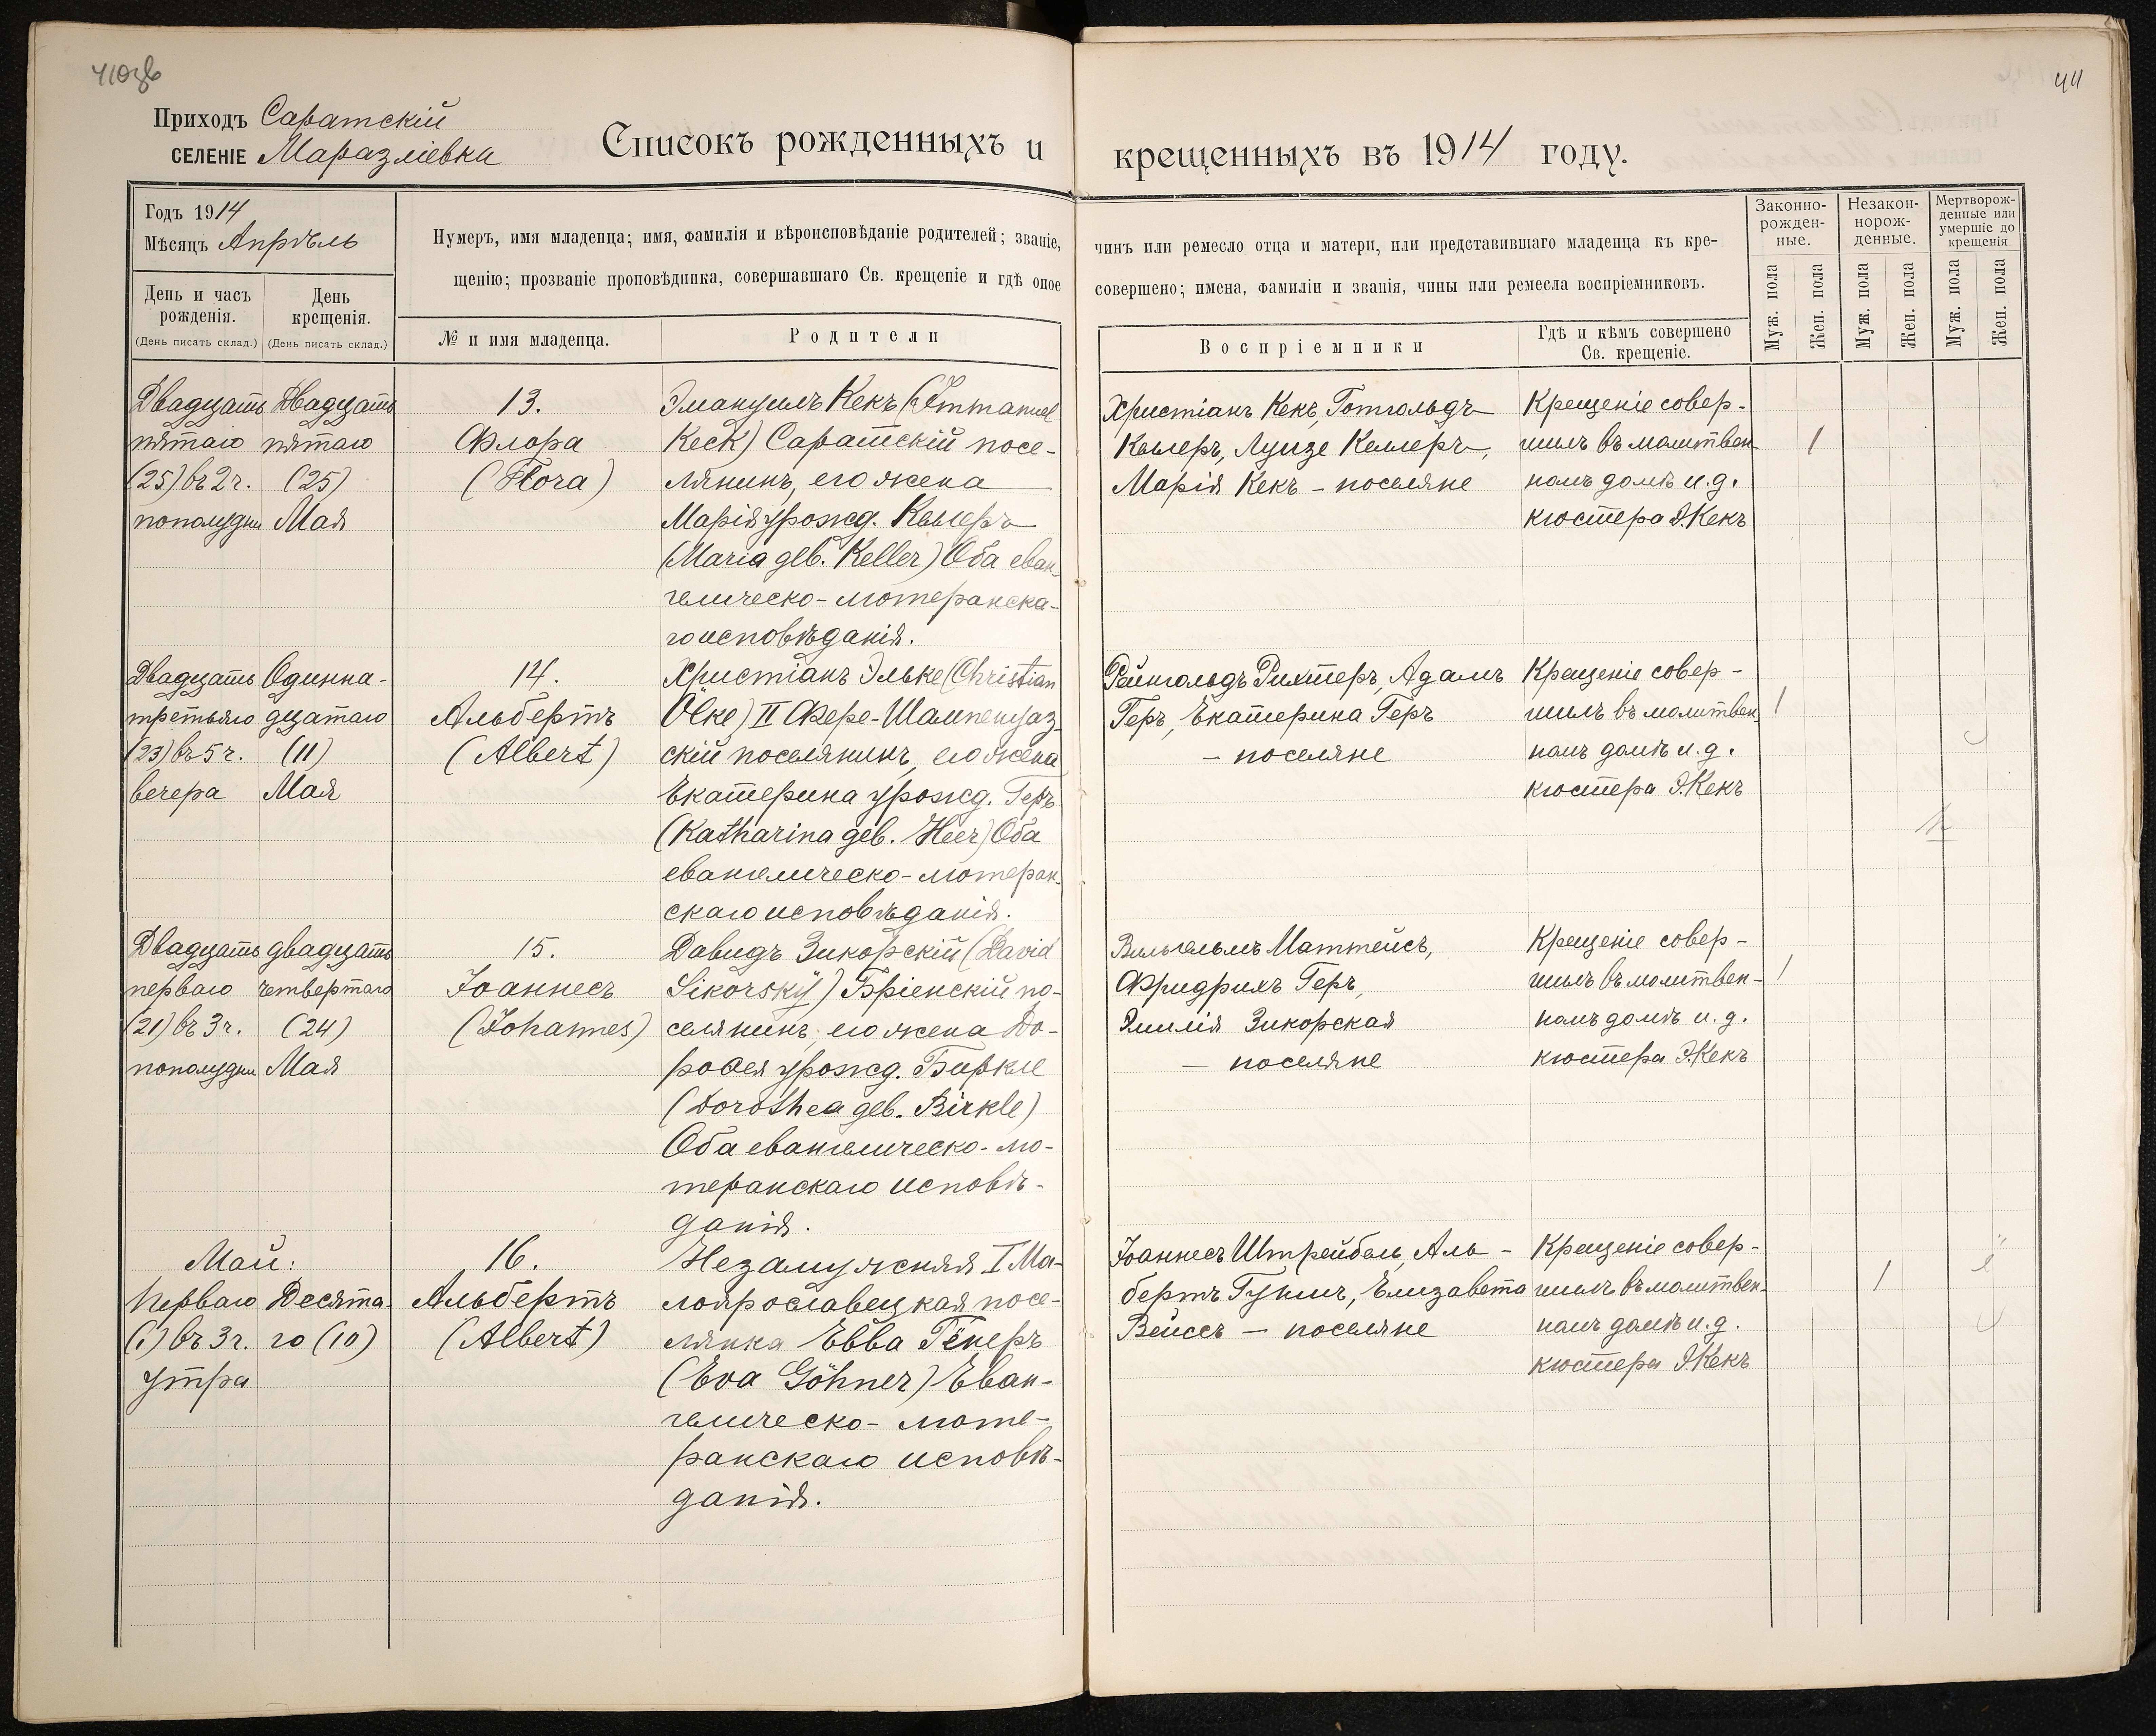 410об
41
Приходъ Саратскій
СЕЛЕНІЕ Маразліевка
Списокъ рожденныхъ и крещенныхъ въ 1914 году.
Годъ 1914
Мѣсяцъ Апрѣль
День и часъ рожденія.
(День писать склад.)
День крещенія.
(День писать склад.)
Нумеръ, имя младенца; имя, фамилія и вѣроисповѣданіе родителей; званіе, чинъ или ремесло отца и матери, или представившаго младенца къ кре-
щенію; прозваніе проповѣдника, совершавшаго Св. крещеніе и гдѣ оное совершено; имена, фамиліи и званія, чины или ремесла воспріемниковъ.
№ и имя младенца.
Родители
Воспріемники
Гдѣ и кѣмъ совершено
Св. крещеніе.
Законно-
рожден-
ные.
Незакон-
норож-
денные.
Мертворож-
денные или
умершіе до
крещенія
Муж. пола
Жен. пола
Муж. пола
Жен. пола
Муж. пола
Жен. пола
Двадцать
пятаго
(25) въ 2 ч.
пополудни
Двадцать
пятаго
(25)
Мая
13.
Флора
(Flora)
Эмануилъ Кекъ (Emmanuel
Keck) Саратскій посе-
лянинъ, его жена
Марія урожд. Келлеръ
(Maria geb. Keller) Оба еван-
гелическо-лютеранска-
го исповѣданія.
Христіанъ Кекъ, Готгольдъ
Келлеръ, Луизе Келлеръ,
Марія Кекъ - поселяне
Крещеніе совер-
шилъ въ молитвен-
номъ домѣ и.д.
кюстера Э.Кекъ
1
Двадцать
третьяго
(23) въ 5 ч.
вечера
Одинна-
дцатаго
(11)
Мая
14.
Альбертъ
(Albert)
Христіанъ Эльке (Christian
Ölke) II Фере-Шампенуаз-
скій поселянинъ, его жена
Екатерина урожд. Геръ
(Katharina geb. Heer) Оба
евангелическо-лютеран-
скаго исповѣданія.
Рейнгольдъ Рихтеръ, Адамъ
Геръ, Екатерина Геръ
- поселяне
Крещеніе совер-
шилъ въ молитвен-
номъ домѣ и.д.
кюстера Э.Кекъ
1
Двадцать
перваго
(21) въ 3 ч.
пополудни
двадцать
четвертаго
(24)
Мая
15.
Іоаннесъ
(Johannes)
Давидъ Зикорскій (David
Sikorsky) Бріенскій по-
селянинъ, его жена До-
роѳея урожд. Биркле
(Dorothea geb. Birkle)
Оба евангелическо-лю-
теранскаго исповѣ-
данія.
Вильгельмъ Маттейсъ,
Фридрихъ Геръ,
Эмилія Зикорская
- поселяне
Крещеніе совер-
шилъ въ молитвен-
номъ домѣ и.д.
кюстера Э.Кекъ
1
Май:
Перваго
(1) въ 3 ч.
утра
Десята-
го (10)
16.
Альбертъ
(Albert)
Незамужняя I Ма-
лоярославецкая посе-
лянка Евва Гёнеръ
(Eva Göhner) Еван-
гелическо-люте-
ранскаго исповѣ-
данія.
Іоаннесъ Штрейбель, Аль-
бертъ Гукшъ, Елизавета
Вейссъ - поселяне
Крещеніе совер-
шилъ въ молитвен-
номъ домѣ и.д.
кюстера Э.Кекъ
1